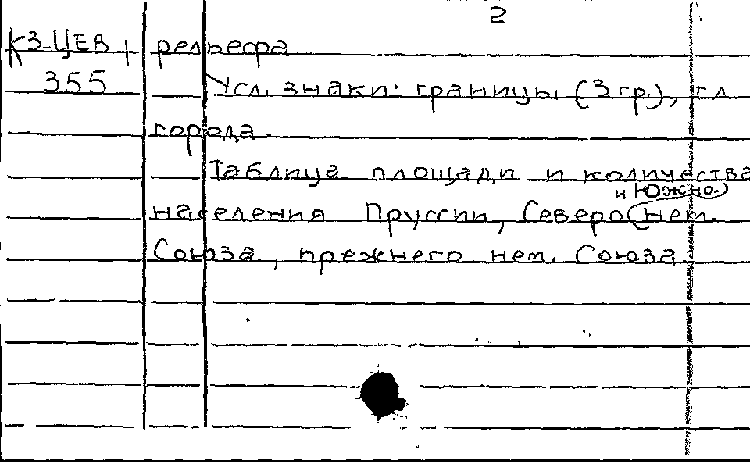 2
КЗ-ЦЕВ рельефа
355 Усл. знаки: границы (3 гр.), гл.
города.
Таблица площади и количества
и Южно-
населения Пруссии, Северо нем.
Союза, прежнего нем. Союза